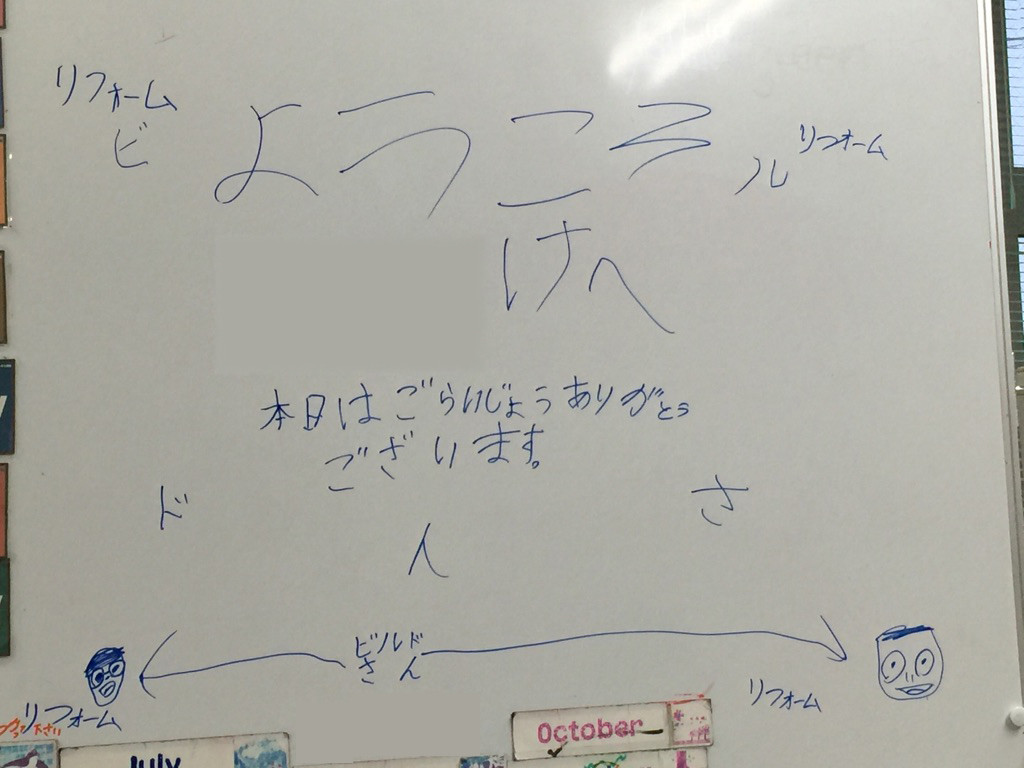 リフォーム
ビ
ようこそ
ル
リフォーム
けへ
本日はごらいじょうありがとう
ございます。
ド
さ
ん
ビルド
さん
リフォーム
リフォーム
下さい
October
July